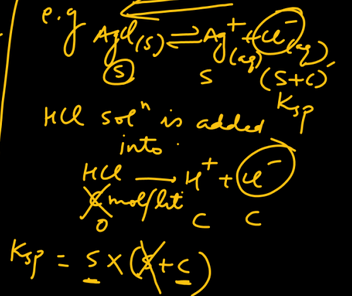 e.g
AgCl(s) ⇌ Ag+(aq) + Cl-(aq)
(s) S (S+C)
Ksp
HCl solⁿ is added
into
HCl → H+ + Cl-
C mol/lit C C
O
Ksp = S × (S+C)